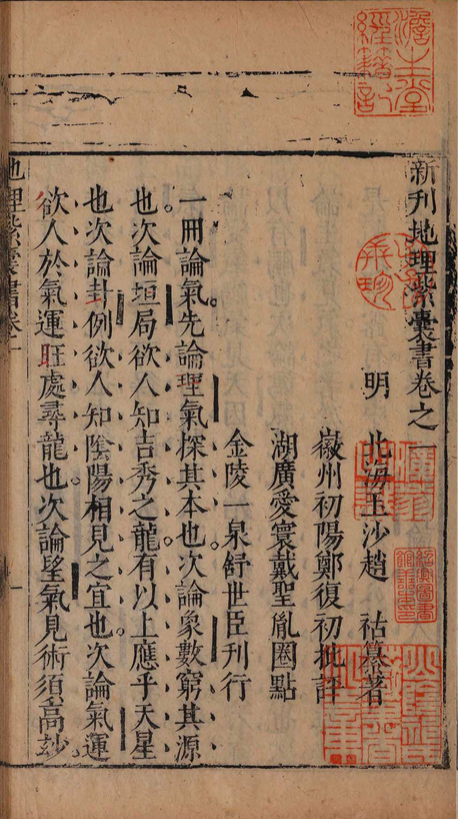 新刊地理紫囊書卷之一
明 北海玉沙趙 祜纂著
徽州初陽鄭復初批評
湖廣愛寰戴聖胤圈點
金陵一泉舒世臣刊行
一冊論氣先論理氣探其本也次論象數窮其源
也次論垣局欲人知吉秀之龍有以上應乎天星
也次論卦例欲人知陰陽相見之宜也次論氣運
欲人於氣運旺處尋龍也次論望氣見術須高玅
地理紫囊書卷一
一
澹生堂
經籍記